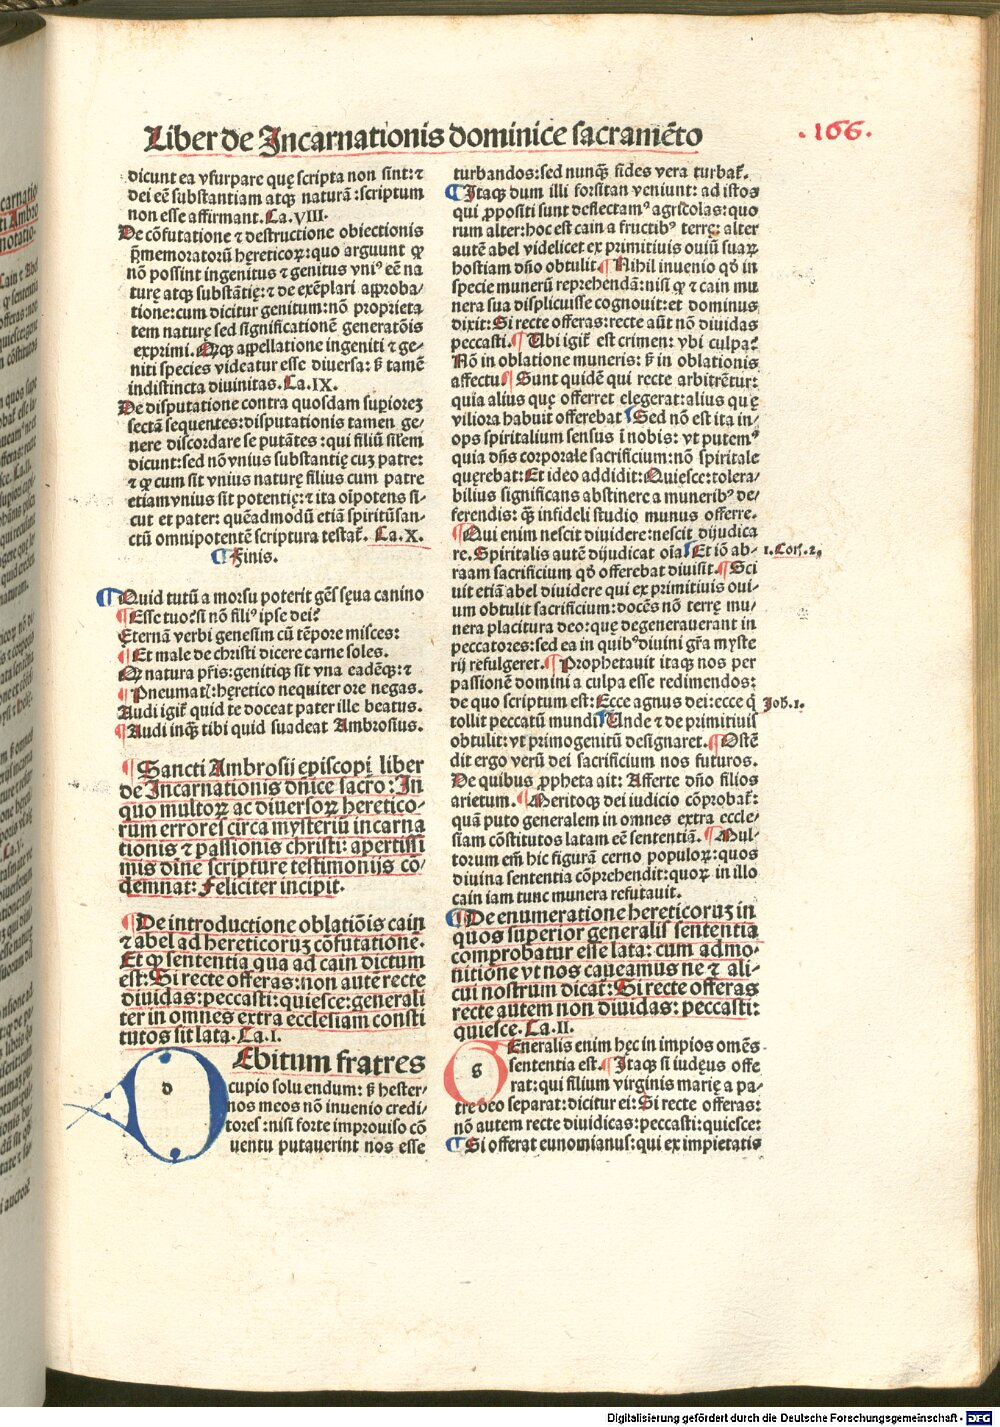 Liber de Incarnationis dominice sacramēto
.166.
dicunt ea vsurpare quę scripta non sint: ⁊
dei eē substantiam atqꝫ naturā: scriptum
non esse affirmant. Ca. VIII.
De cōfutatione ⁊ destructione obiectionis
p̄memoratorū hęreticoꝝ: quo arguunt ꝙ
nō possint ingenitus ⁊ genitus vniꝰ eē na
turę atqꝫ substātię: ⁊ de exēplari approba/
tione: cum dicitur genitum: nō proprieta
tem naturę sed significationē generatōis
exprimi. Atqꝫ appellatione ingeniti ⁊ ge/
niti species videatur esse diuersa: s̄ tamē
indistincta diuinitas. Ca. IX.
De disputatione contra quosdam supiorez
sectā sequentes: disputationis tamen ge/
nere discordare se putātes: qui filiū silem
dicunt: sed nō vnius substantię cuꝫ patre:
⁊ ꝙ cum sit vnius naturę filius cum patre
etiam vnius sit potentię: ⁊ ita oīpotens si/
cut et pater: quēadmodū etiā spiritūsan/
ctū omnipotentē scriptura testat᷑. Ca. X.
¶ Finis.
¶ Quid tutū a morsu poterit gēs sęua canino
¶ Esse tuo: si nō filiꝰ ipse dei?
Eternā verbi genesim cū tēpore misces:
¶ Et male de christi dicere carne soles.
Qꝫ natura pr̄is: genitiqꝫ sit vna eadēqꝫ: ⁊
¶ Pneumatꝭ: hęretico nequiter ore negas.
Audi igit᷑ quid te doceat pater ille beatus.
¶ Audi inqꝫ tibi quid suadeat Ambrosius.
¶ Sancti Ambrosij episcopi liber
de Incarnationis dn̄ice sacro: In
quo multoꝝ ac diuersoꝝ heretico/
rum errores circa mysteriū incarna
tionis ⁊ passionis christi: apertissi
mis diīne scripture testimonijs cō/
demnat: Feliciter incipit.
¶ De introductione oblatiōis cain
⁊ abel ad hereticoruꝫ cōfutatione.
Et ꝙ sententia qua ad cain dictum
est: Si recte offeras: non autē recte
diuidas: peccasti: quiesce: generali
ter in omnes extra ecclesiam consti
tutos sit lata. Ca. I.
D Ebitum fratres
cupio soluendum: s̄ hester/
nos meos nō inuenio credi/
tores: nisi forte improuiso cō
uentu putauerint nos esse
turbandos: sed nunqꝫ fides vera turbat᷑.
¶ Itaqꝫ dum illi forsitan veniunt: ad istos
qui ꝓpositi sunt deflectamꝰ agricolas: quo
rum alter: hoc est cain a fructibꝰ terrę: alter
autē abel videlicet ex primitiuis ouiū suaꝝ
hostiam dn̄o obtulit. ¶ Nihil inuenio qd̄ in
specie munerū reprehendā: nisi ꝙ ⁊ cain mu
nera sua displicuisse cognouit: et dominus
dixit: Si recte offeras: recte aūt nō diuidas
peccasti. ¶ Ubi igit᷑ est crimen: vbi culpa?
Nō in oblatione muneris: s̄ in oblationis
affectu. ¶ Sunt quidē qui recte arbitrētur:
quia alius quę offerret elegerat: alius quę
viliora habuit offerebat ¶ Sed nō est ita in/
ops spiritalium sensus ī nobis: vt putemꝰ
quia dn̄s corporale sacrificium: nō spiritale
quęrebat: Et ideo addidit: Quiesce: tolera/
bilius significans abstinere a muneribꝰ de/
ferendis: qꝫ infideli studio munus offerre.
¶ Qui enim nescit diuidere: nescit dijudica
re. Spiritalis autē dijudicat oīa ¶ Et iō ab/
raam sacrificium qd̄ offerebat diuisit. ¶ Sci
uit etiā abel diuidere qui ex primitiuis oui/
um obtulit sacrificium: docēs nō terrę mu/
nera placitura deo: quę degenerauerant in
peccatores: sed ea in quibꝰ diuini gr̄a myste
rij refulgeret. ¶ Prophetauit itaqꝫ nos per
passionē domini a culpa esse redimendos:
de quo scriptum est: Ecce agnus dei: ecce q̇
tollit peccatū mundi ¶ Unde ⁊ de primitiuis
obtulit: vt primogenitū designaret. ¶ Ostē
dit ergo verū dei sacrificium nos futuros.
De quibus ꝓpheta ait: Afferte dn̄o filios
arietum. ¶ Meritoqꝫ dei iudicio cōprobat᷑:
quā puto generalem in omnes extra eccle/
siam cōstitutos latam eē sententiā. ¶ Mul/
torum em̄ hic figurā cerno populoꝝ: quos
diuina sententia cōprehendit: quoꝝ in illo
cain iam tunc munera refutauit.
¶ De enumeratione hereticoruꝫ in
quos superior generalis sententia
comprobatur esse lata: cum admo/
nitiōne vt nos caueamus ne ⁊ ali/
cui nostrum dicat᷑: Si recte offeras
recte autem non diuidas: peccasti:
quiesce. Ca. II.
G Eneralis enim hęc in impios omēs
sententia est. ¶ Itaqꝫ si iudęus offe
rat: qui filium virginis marię a pa/
tre deo separat: dicitur ei: Si recte offeras:
nō autem recte diuidicas: peccasti: quiesce:
¶ Si offerat eunomianus: qui ex impietatis
1. Cor. 2.
Joh. 1.
Digitalisierung gefördert durch die Deutsche Forschungsgemeinschaft - DFG